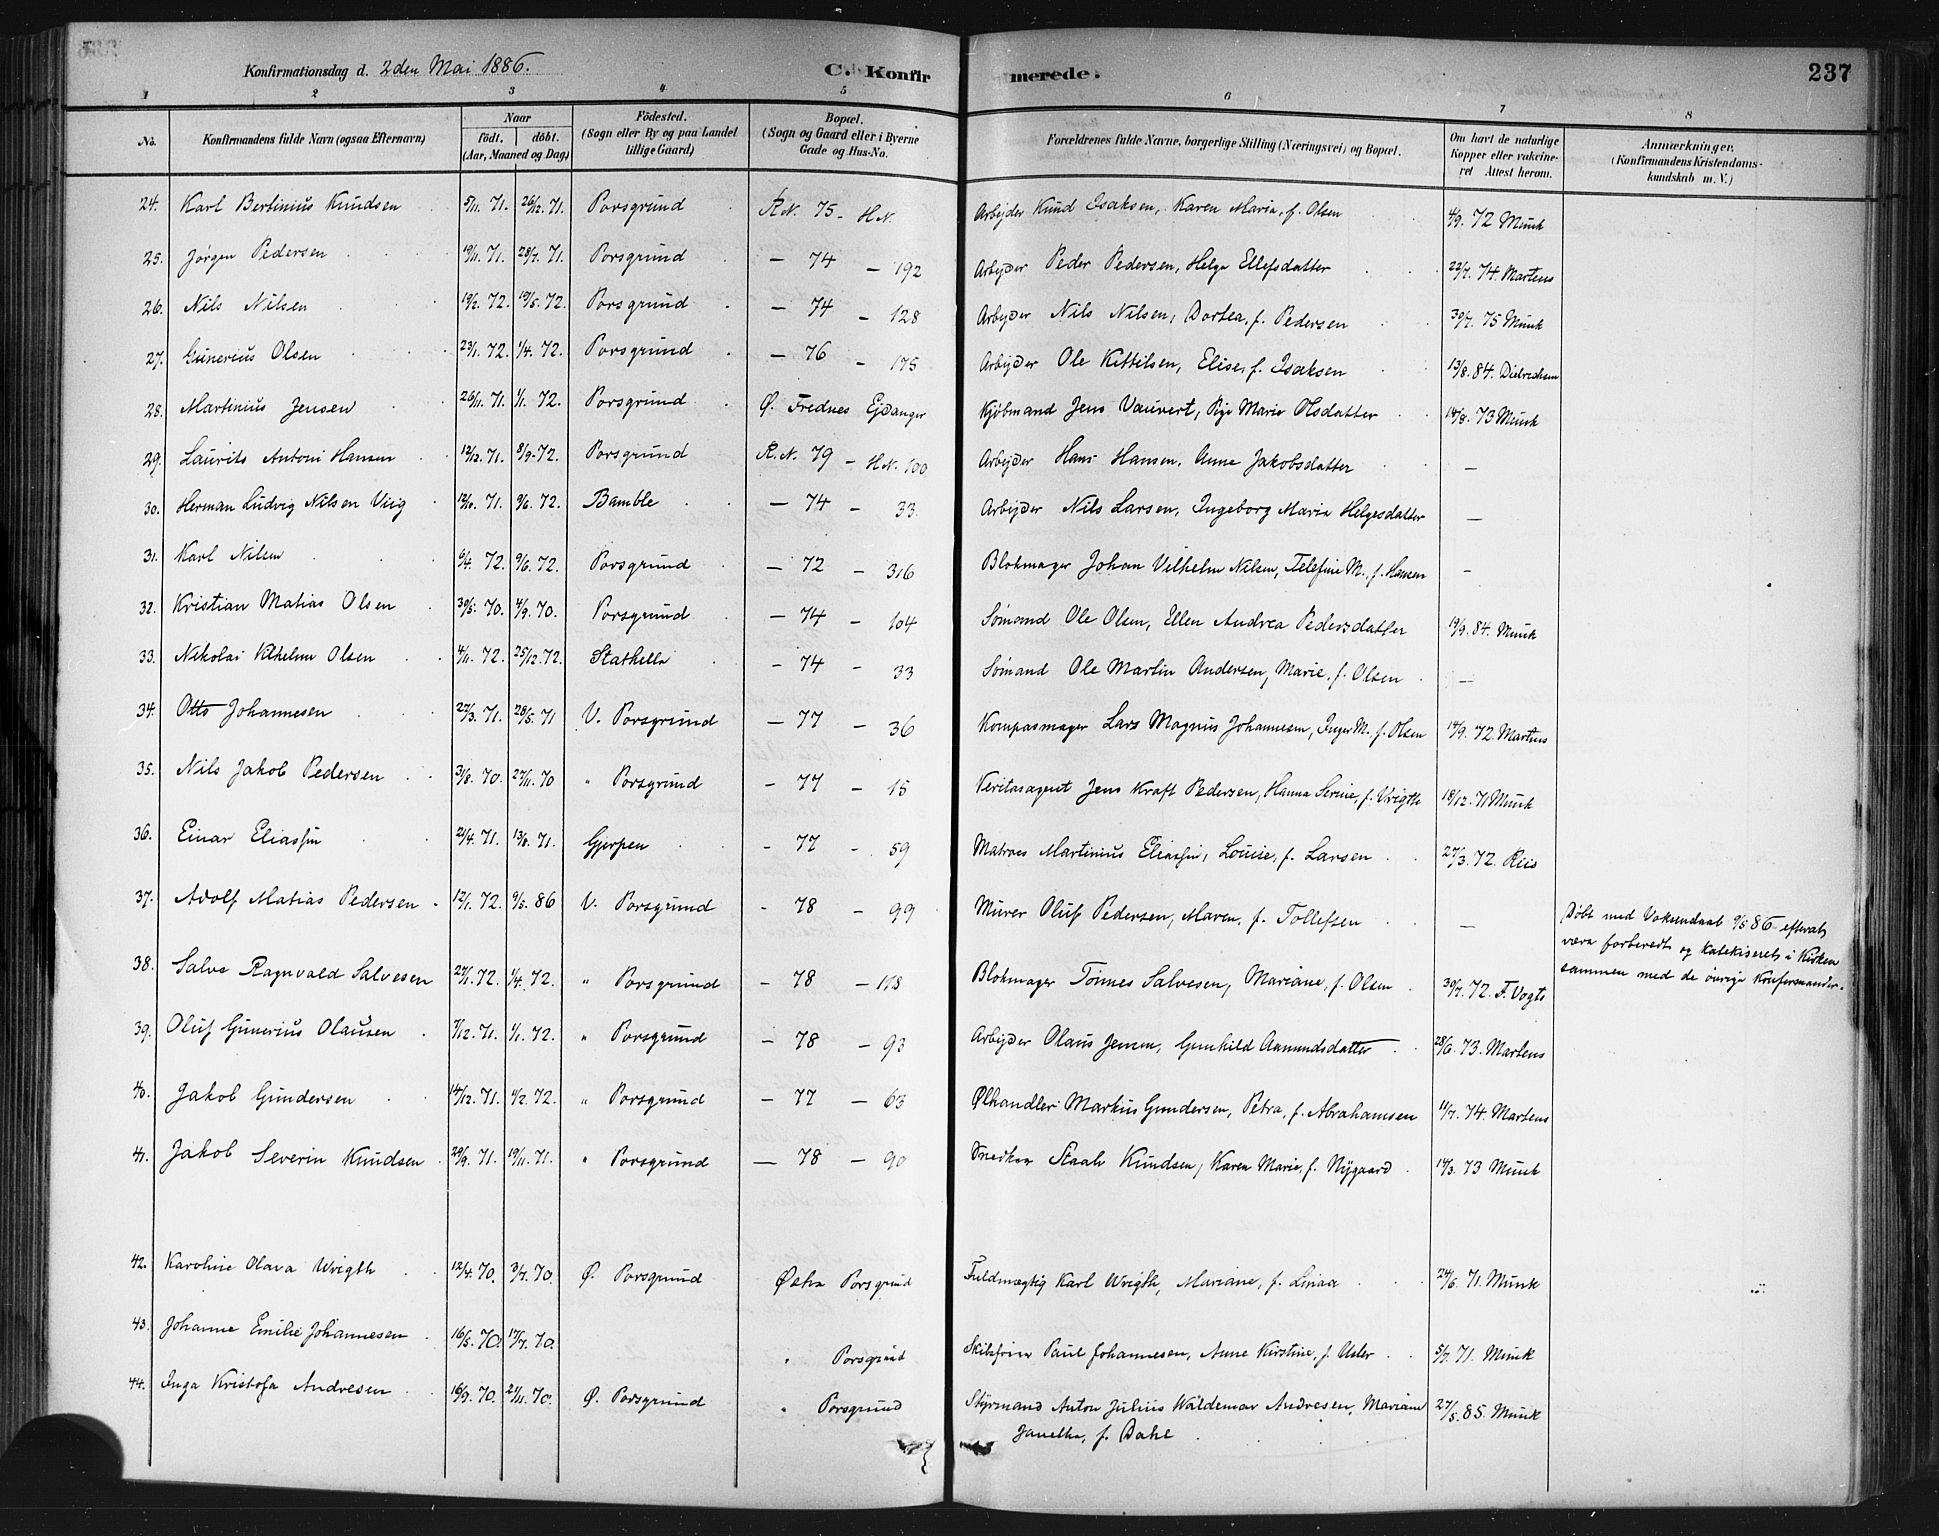 Konfirmationsdag d. 2den Mai 1886. C. Konfirmerede. 237
1 2 3 4 5 6 7 8
No. Konfirmandens fulde Navn (ogsaa Efternavn) Naar født. døbt. (Aar, Maaned og Dag) Födested. (Sogn eller By og paa Landet tillige Gaard) Bopæl. (Sogn og Gaard eller i Byerne Gade og Hus-No. Forældrenes fulde Navne, borgerlige Stilling (Næringsvei) og Bopæl. Om havt de naturlige Kopper eller vakcineret Attest herom. Anmærkninger. (Konfirmandens Kristendomskundskab m. V.)
24. Karl Bertinius Knudsen 5/11. 71. 26/12. 71. Porsgrund R.N. 75 - H.N. Arbejder Knud Isaksen, Karen Maria, f. Olsen 4/9. 72 Munk
25. Jørgen Pedersen 19/11. 71. 28/7. 71. Porsgrund — 74 — 192 Arbejder Peder Pedersen, Helge Ellefsdatter 22/7. 74 Martens
26. Nils Nilsen 19/2. 72. 19/5. 72. Porsgrund — 74 — 128 Arbejder Nils Nilsen, Dortea, f. Pedersen 30/7. 75 Munk
27. Gunerius Olsen 23/1. 72. 1/4. 72. Porsgrund — 76 — 175 Arbejder Ole Kittilsen, Elise, f. Isaksen 13/8. 84.
28. Martinius Jensen 26/11. 71. 1/1. 72. Porsgrund Ø. Frednes Ejdanger Kjøbmand Jens Vauvert, Marie Olsdatter 14/8. 73 Munk
29. Laurits Antoni Hansen 12/12. 71. 8/9. 72. Porsgrund R.N. 79 — H.N. 100 Arbejder Hans Hansen, Anne Jakobsdatter —
30. Herman Ludvig Nilsen Viig 12/10. 71. 9/6. 72. Bamble — 74 — 33 Arbejder Nils Larsen, Ingeborg Maria Helgesdatter —
31. Karl Nilsen 6/4. 72. 9/6. 72. Porsgrund — 72 — 316 Blokmager Johan Vilhelm Nilsen, Telefine M., f. Hansen —
32. Kristian Matias Olsen 30/5. 70. 4/9. 70. Porsgrund — 74 — 104 Sømand Ole Olsen, Ellen Andrea Pedersdatter 19/9. 84. Munk
33. Nikolai Vilhelm Olsen 4/11. 72. 25/12. 72. Stathelle — 74 — 33 Sømand Ole Martin Andersen, Marie, f. Olsen —
34. Otto Johannesen 22/3. 71. 28/5. 71 V. Porsgrund — 77 — 36 Kompasmager Lars Magnus Johannesen, Inger M., f. Olsen 14/9. 72. Martens
35. Nils Jakob Pedersen 31/8. 70. 27/11. 70 " Porsgrund — 77 — 15 Veritasagent Jens Kraft Pedersen, Hanna Serine, f. Wrigth 18/12. 71 Munk
36. Einar Eliassen 21/4. 71. 13/8. 71. Gjerpen - 77 - 59 Matros Martinius Eliassen, Louise, f. Larsen 27/3. 72. Riis
37. Adolf Matias Pedersen 12/1. 72. 9/5. 86 V. Porsgrund - 78 — 99 Murer Oluf Pedersen, Maren, f. Tollefsen — Døbt med Voksendaab 9/5 86 efterat
være forberedt og katekiseret i Kirken
sammen med de øvrige Konfirmander.
38. Salve Ragnvald Salvesen 27/1. 72. 1/4. 72. " Porsgrund — 78 — 118 Blokmager Tønnes Salvesen, Mariane, f. Olsen 30/7. 72. F. Vogt
39. Oluf Gunerius Olausen 7/12. 71. 1/1. 72. " Porsgrund — 78 — 93 Arbejder Olaus Jensen, Gunhild Aamundsdatter 28/6. 73. Martens
40. Jakob Gundersen 14/12. 71. 11/2. 72. " Porsgrund — 77 — 63 Ølhandler Markus Gundersen, Petra, f. Abrahamsen 11/7. 74. Martens
41. Jakob Severin Knudsen 29/9. 71. 19/11. 71. " Porsgrund — 78 — 90 Snedker Staale Knudsen, Karen Marie, f. Nygaard 14/3. 73 Munk
42. Karoline Olava Wrigth 12/4. 70. 3/7. 70. Ø. Porsgrund Østre Porsgrund Fuldmægtig Karl Wrigth, Mariane, f. Linaa 24/6. 71. Munk
43. Johanne Emilie Johannesen 16/5. 70. 17/7. 70. " Porsgrund Skibsfører Paul Johannesen, Anne Kirstine, f. 5/7. 71. Munk
44. Inga Kristofa Andresen 16/9. 70. 27/11. 70. Ø. Porsgrund " Porsgrund Styrmand Anton Julius Waldemar Andresen, Mariane 27/5. 85. Munk
f. Dahl